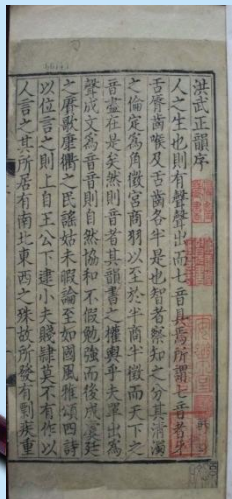 洪武正韻序
人之生也則有聲聲出而七音具焉所謂七音者牙
舌脣齒喉及舌齒各半是也智者察知之分其清濁
之倫定為角徵宮商羽以至於半商半徵而天下之
音盡在是矣然則音者其韻書之權輿乎夫單出為
聲成文為音音則自然協和不假勉強而後成虞廷
之賡歌康衢之民謠姑未暇論至如國風雅頌四詩
以位言之則上自王公下逮小夫賤隸莫不有作以
人言之其所居有南北東西之殊故所發有剽疾重